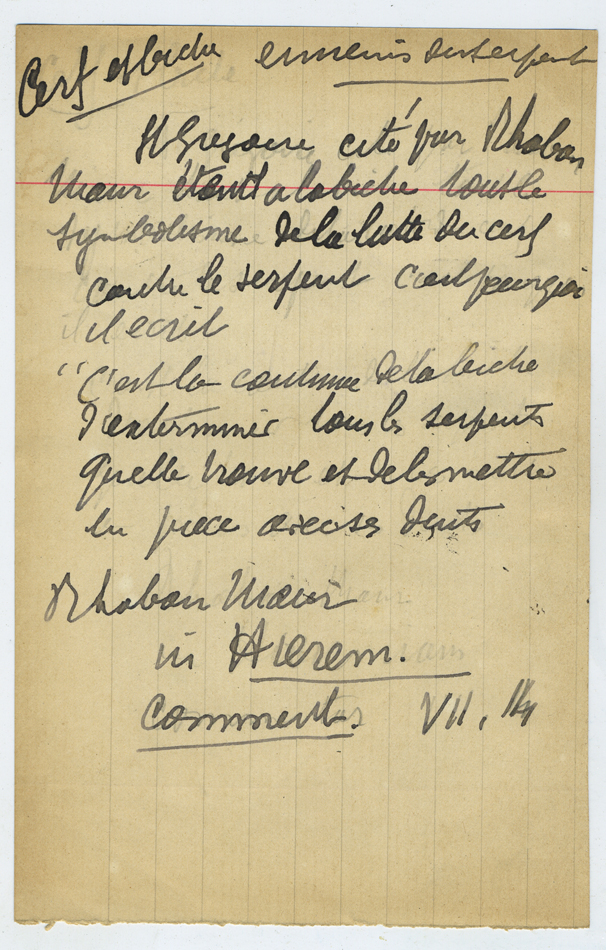 Cerf et biche ennemis du serpent
St Gregoire cité par Rhaban
Maur étend a la biche tout le
symbolisme de la lutte du cerf
contre le serpent c'est pourquoi
il ecrit
"C'est la coutume de la biche
d'exterminer tous les serpents
qu'elle trouve et de les mettre
en piece avec ses dents
Rhaban Maur
in Hierem.
comment. VII, 14